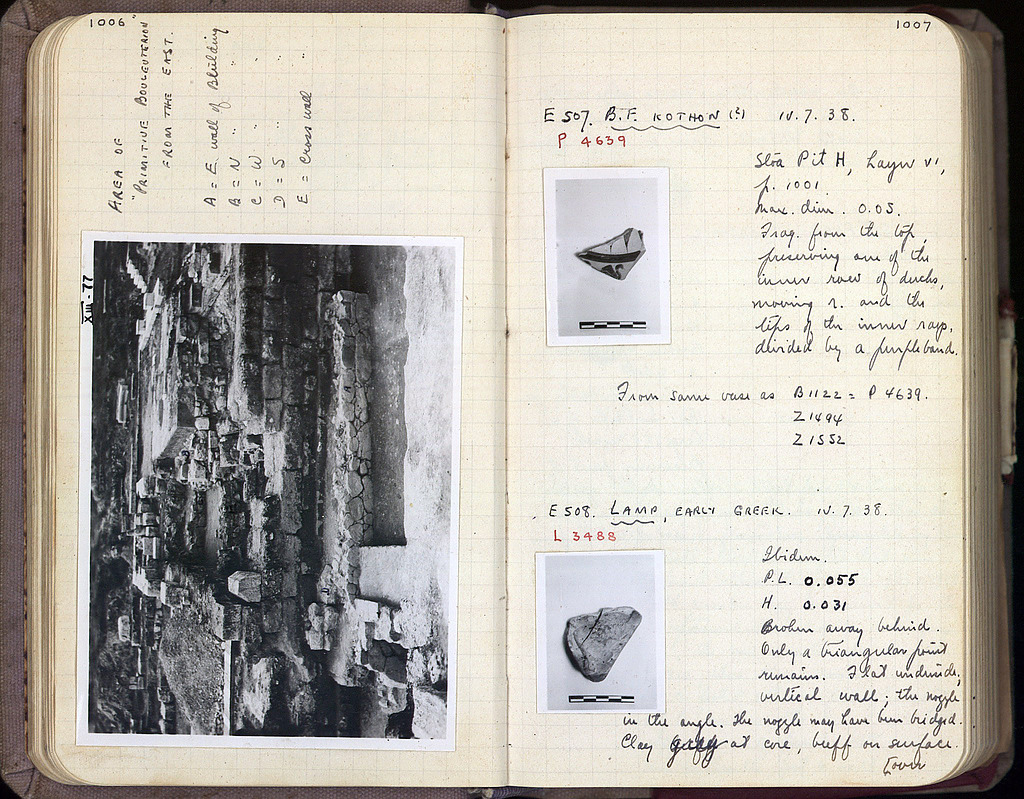 1006
AREA OF
"PRIMITIVE BOULEUTERION"
FROM THE EAST.
A = E wall of Building
B = N " "
C = W " "
D = S " "
E = Cross wall "
XIII-77
1007
E 507. B.F. KOTHON (?) IV.7.38.
P 4639
Stoa Pit H, Layer VI,
p. 1001.
Max. dim. 0.05.
Frag. from the top,
preserving one of the
inner row of ducks,
moving r. and the
tips of the inner rays,
divided by a purple band.
From same vase as B1122 = P 4639.
Z 1494
Z 1552
E 508. LAMP, EARLY GREEK. IV.7.38.
L 3488
Ibidem.
P.L. 0.055
H. 0.031
Broken away behind.
Only a triangular point
remains. Flat underside,
vertical wall; the nozzle
in the angle. The nozzle may have been bridged.
Clay at core, buff on surface.
[over